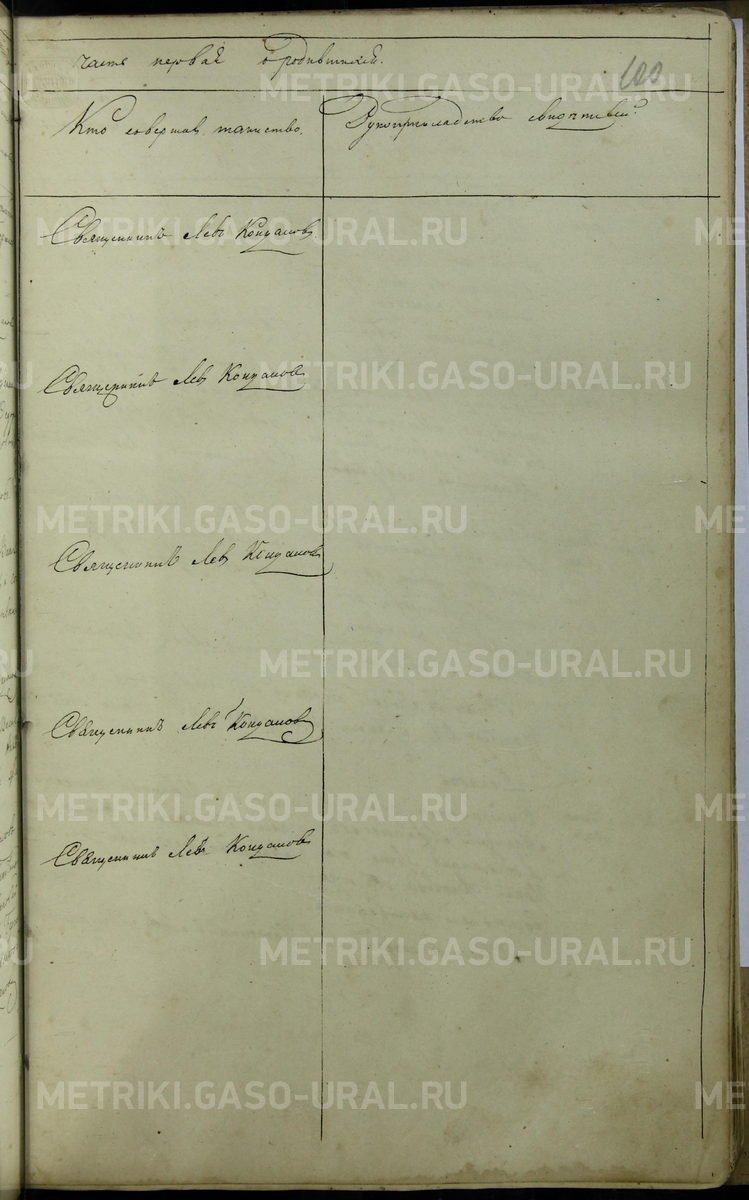 часть первая о родившихся.
100
Кто совершал таинство.
Рукоприкладство свидетелей.
Священникъ Левъ Кондаковъ.
Священникъ Левъ Кондаковъ
Священникъ Левъ Кондаковъ
Священникъ Левъ Кондаковъ
Священникъ Левъ Кондаковъ
METRIKI.GASO-URAL.RU